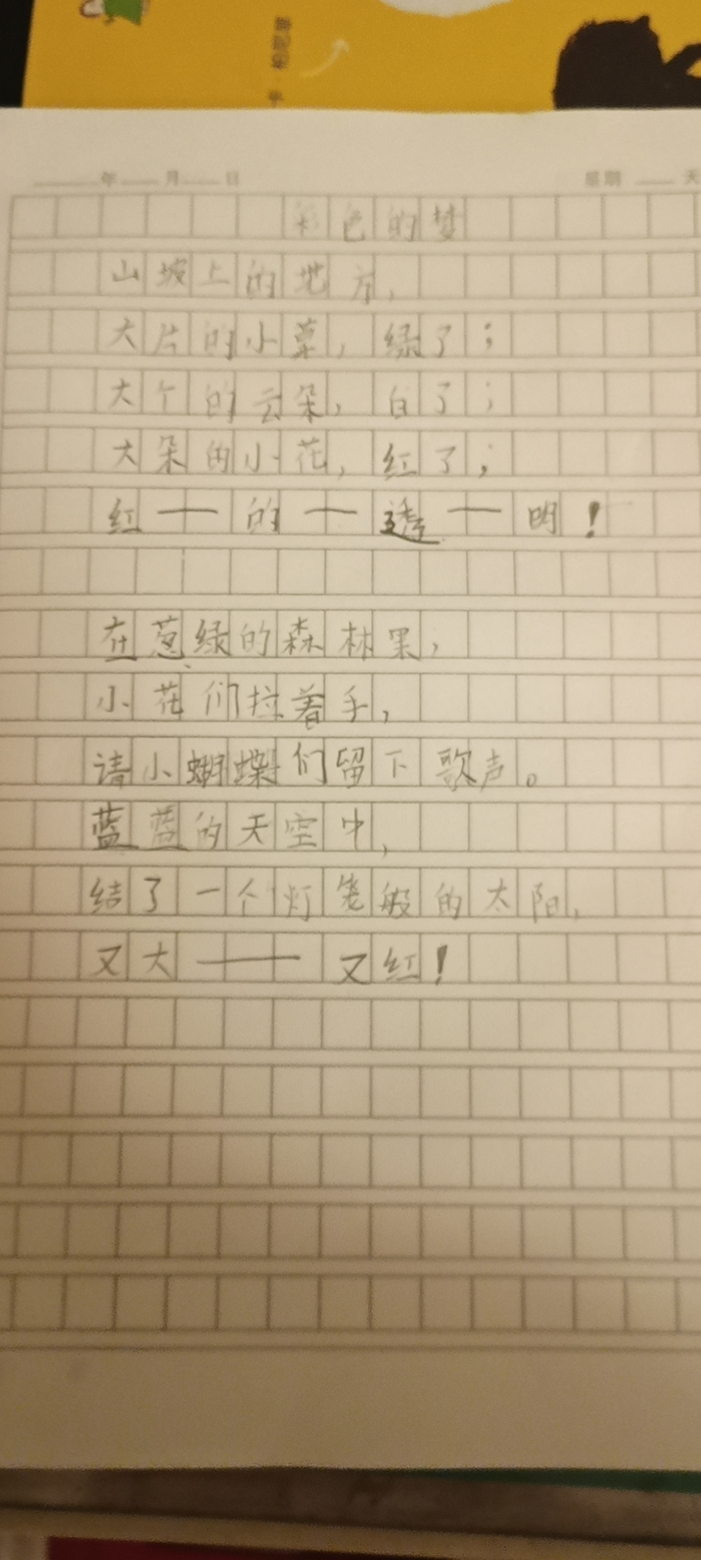 年 月 日 星期 天
彩色的梦
山坡上的地方，
大片的小草，绿了；
大个的云朵，白了；
大朵的小花，红了；
红一的一透一明！
在葱绿的森林里，
小花们拉着手，
请小蝴蝶们留下歌声。
蓝蓝的天空中，
结了一个灯笼般的太阳，
又大——又红！